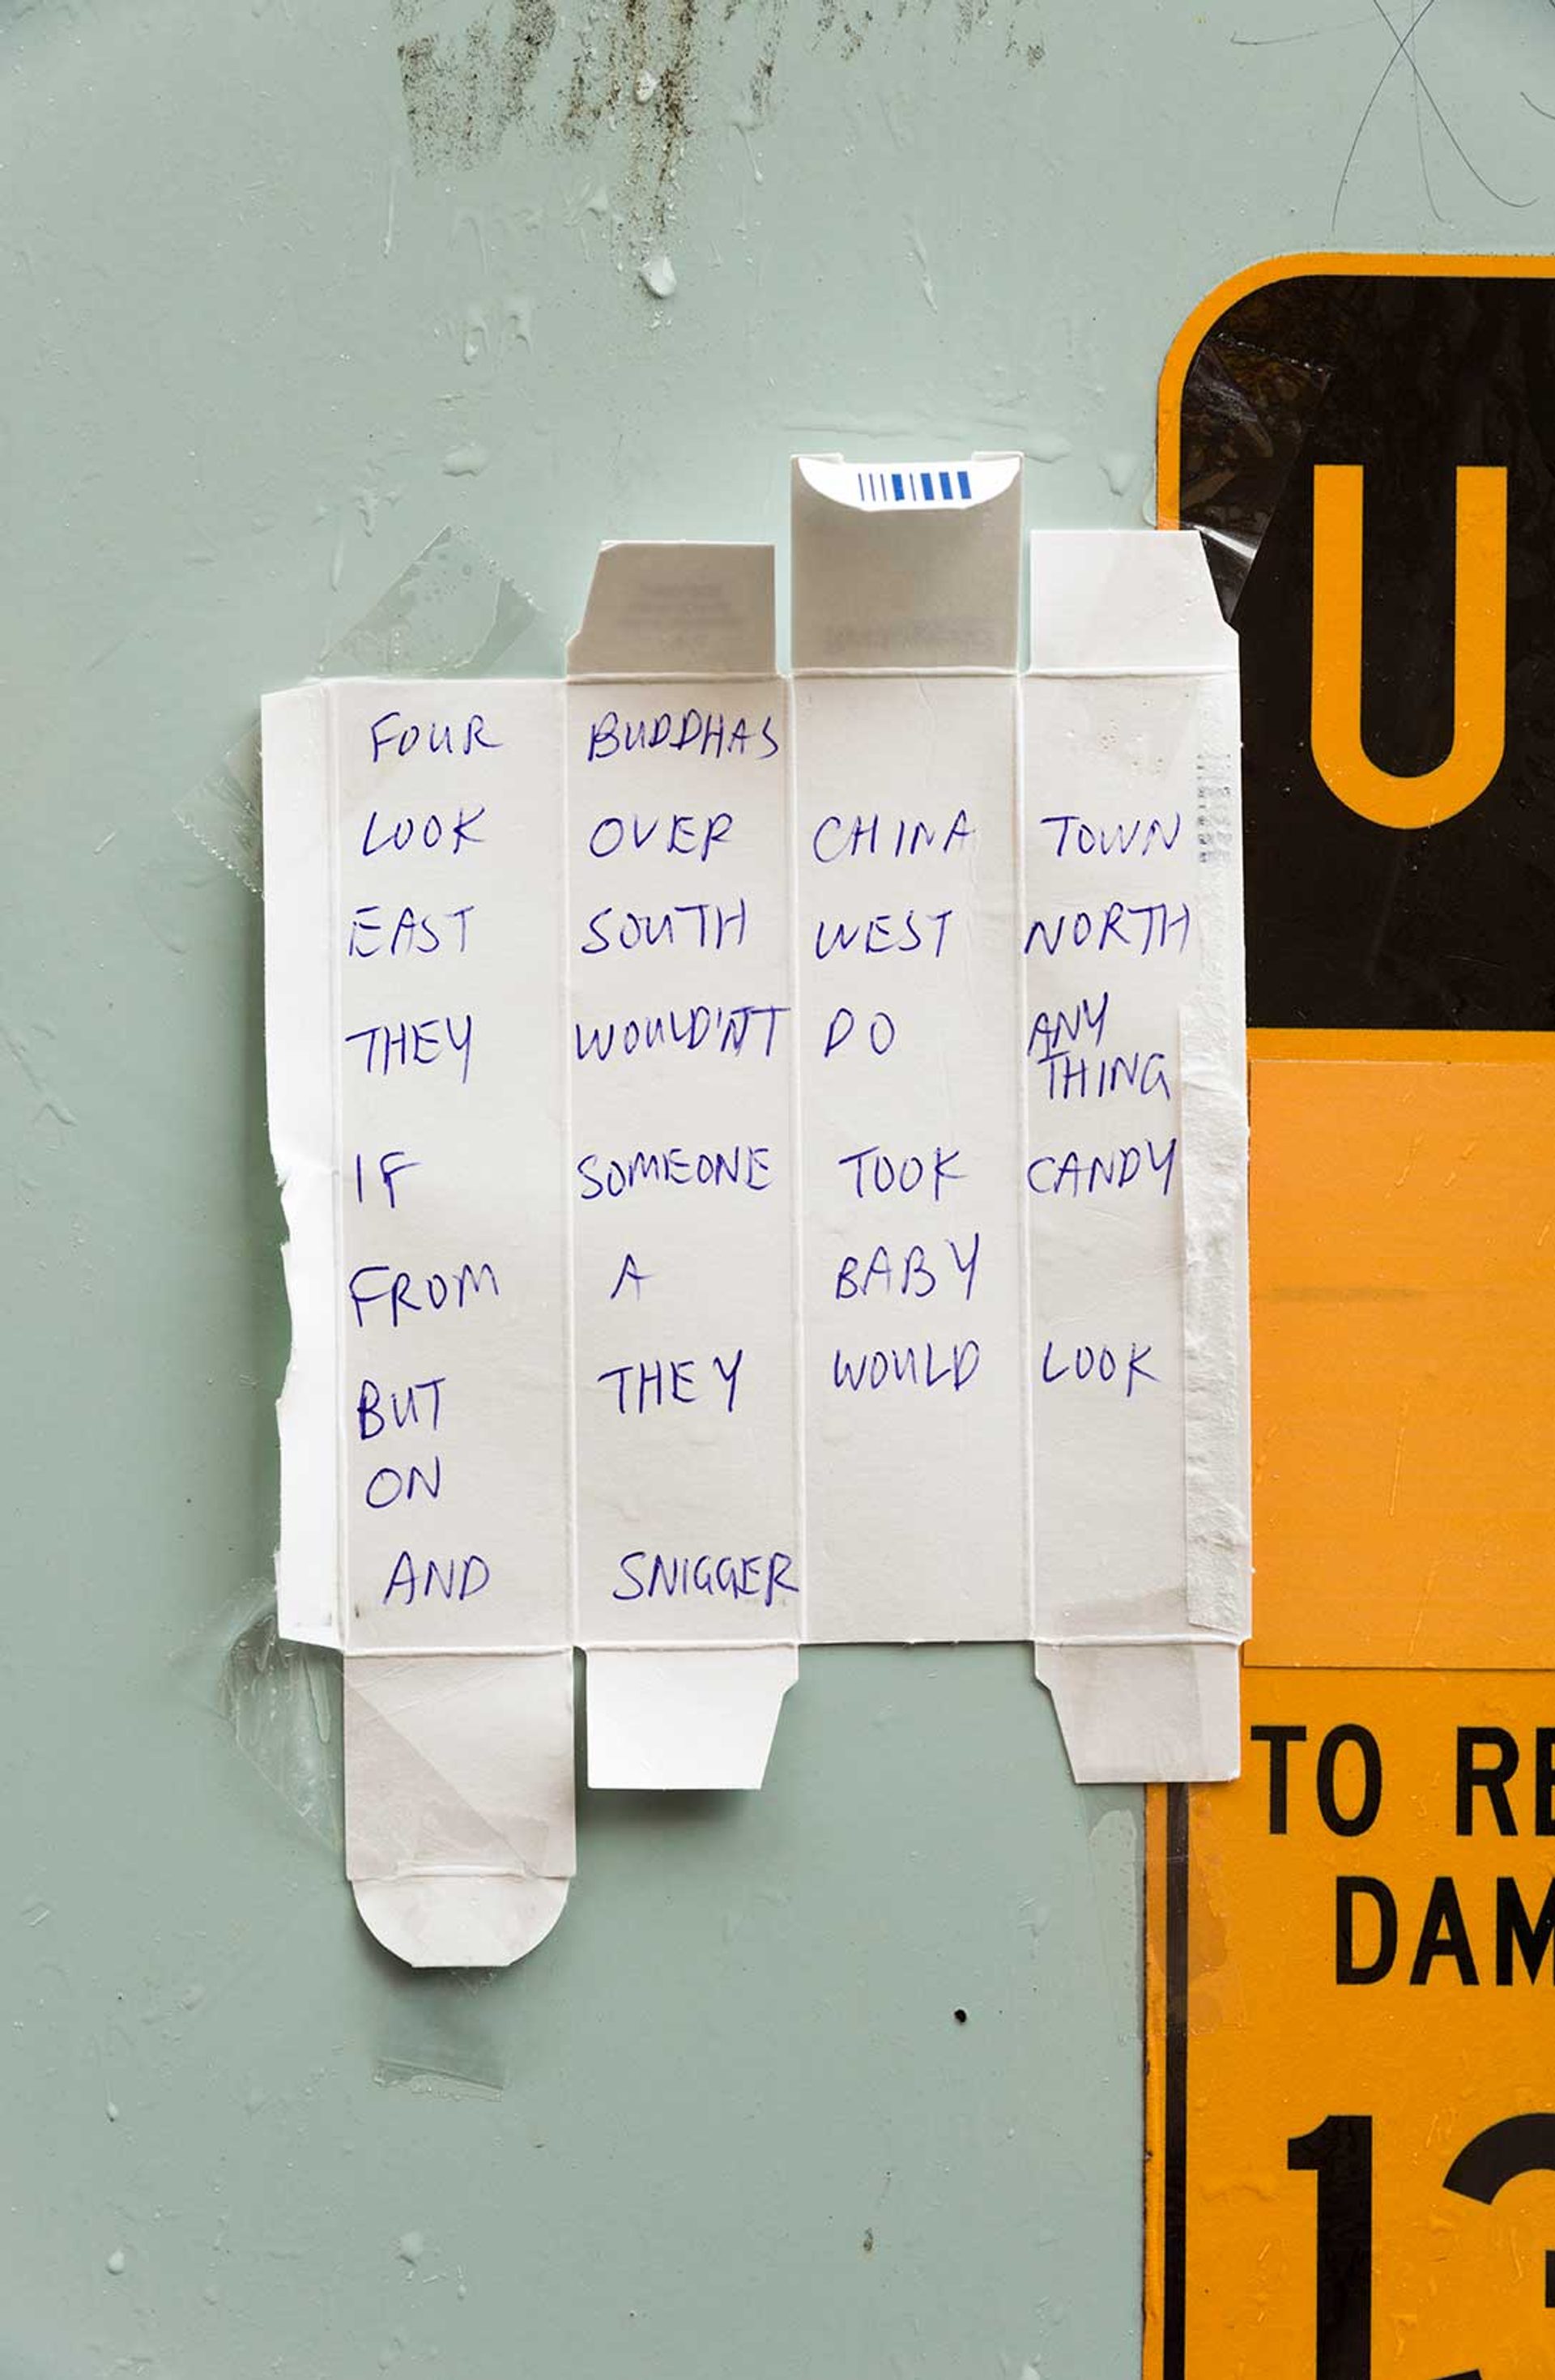 FOUR BUDDHAS
LOOK OVER CHINA TOWN
EAST SOUTH WEST NORTH
THEY WOULD'NT DO ANY
THING
IF SOMEONE TOOK CANDY
FROM A BABY
BUT THEY WOULD LOOK
ON
AND SNIGGER
U
TO RE
DAM
13